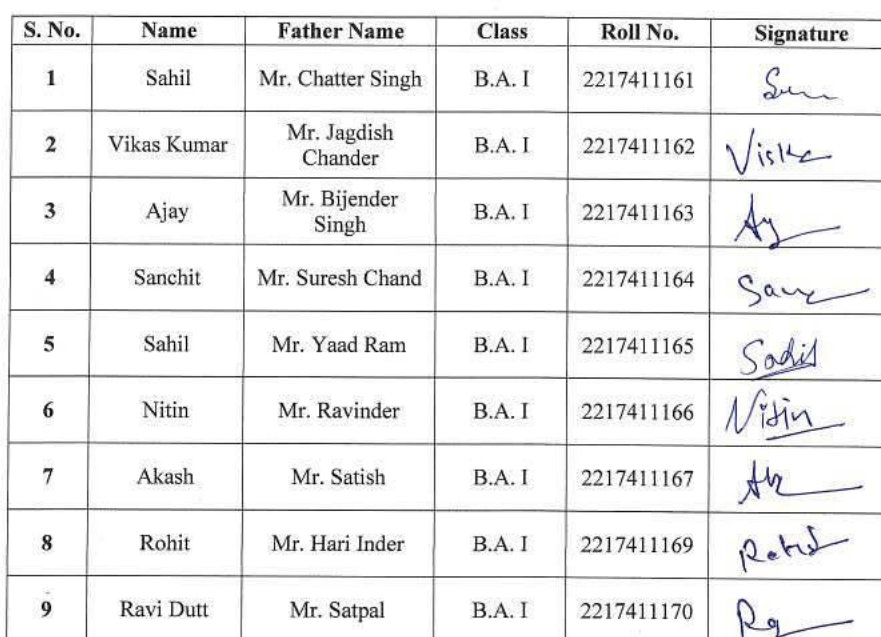 S. No. Name Father Name Class Roll No. Signature
1 Sahil Mr. Chatter Singh B.A. I 2217411161
2 Vikas Kumar Mr. Jagdish Chander B.A. I 2217411162
3 Ajay Mr. Bijender Singh B.A. I 2217411163
4 Sanchit Mr. Suresh Chand B.A. I 2217411164
5 Sahil Mr. Yaad Ram B.A. I 2217411165
6 Nitin Mr. Ravinder B.A. I 2217411166 Nitin
7 Akash Mr. Satish B.A. I 2217411167
8 Rohit Mr. Hari Inder B.A. I 2217411169
9 Ravi Dutt Mr. Satpal B.A. I 2217411170